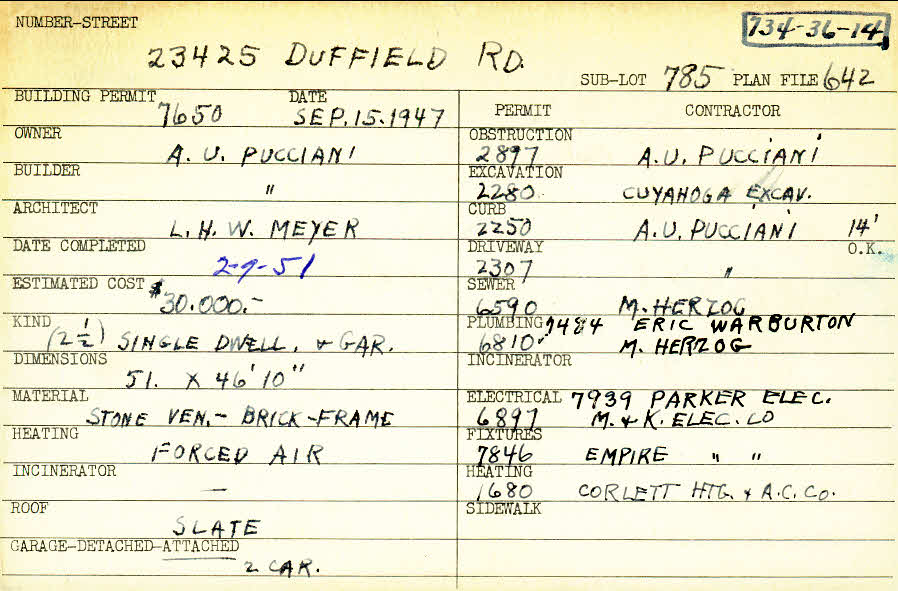 NUMBER-STREET
734-36-14
23425 DUFFIELD RD.
SUB-LOT 785 PLAN FILE 642
BUILDING PERMIT DATE
7650 SEP. 15. 1947
OWNER
A. U. PUCCIANI
BUILDER
"
ARCHITECT
L. H. W. MEYER
DATE COMPLETED
2-9-51
ESTIMATED COST $30.000.-
KIND
(2 1/2) SINGLE DWELL. & GAR.
DIMENSIONS
51. X 46' 10"
MATERIAL
STONE VEN. - BRICK - FRAME
HEATING
FORCED AIR
INCINERATOR
—
ROOF
SLATE
GARAGE-DETACHED-ATTACHED
2 CAR.
PERMIT CONTRACTOR
OBSTRUCTION
2897 A. U. PUCCIANI
EXCAVATION
2280 CUYAHOGA EXCAV.
CURB
2250 A. U. PUCCIANI 14'
O.K.
DRIVEWAY
2307 "
SEWER
6590 M. HERZOG
PLUMBING 7484 ERIC WARBURTON
6810 M. HERZOG
INCINERATOR
ELECTRICAL 7939 PARKER ELEC.
6897 M. & K. ELEC. CO
FIXTURES
7846 EMPIRE " "
HEATING
1680 CORLETT HTG. & A.C. CO.
SIDEWALK